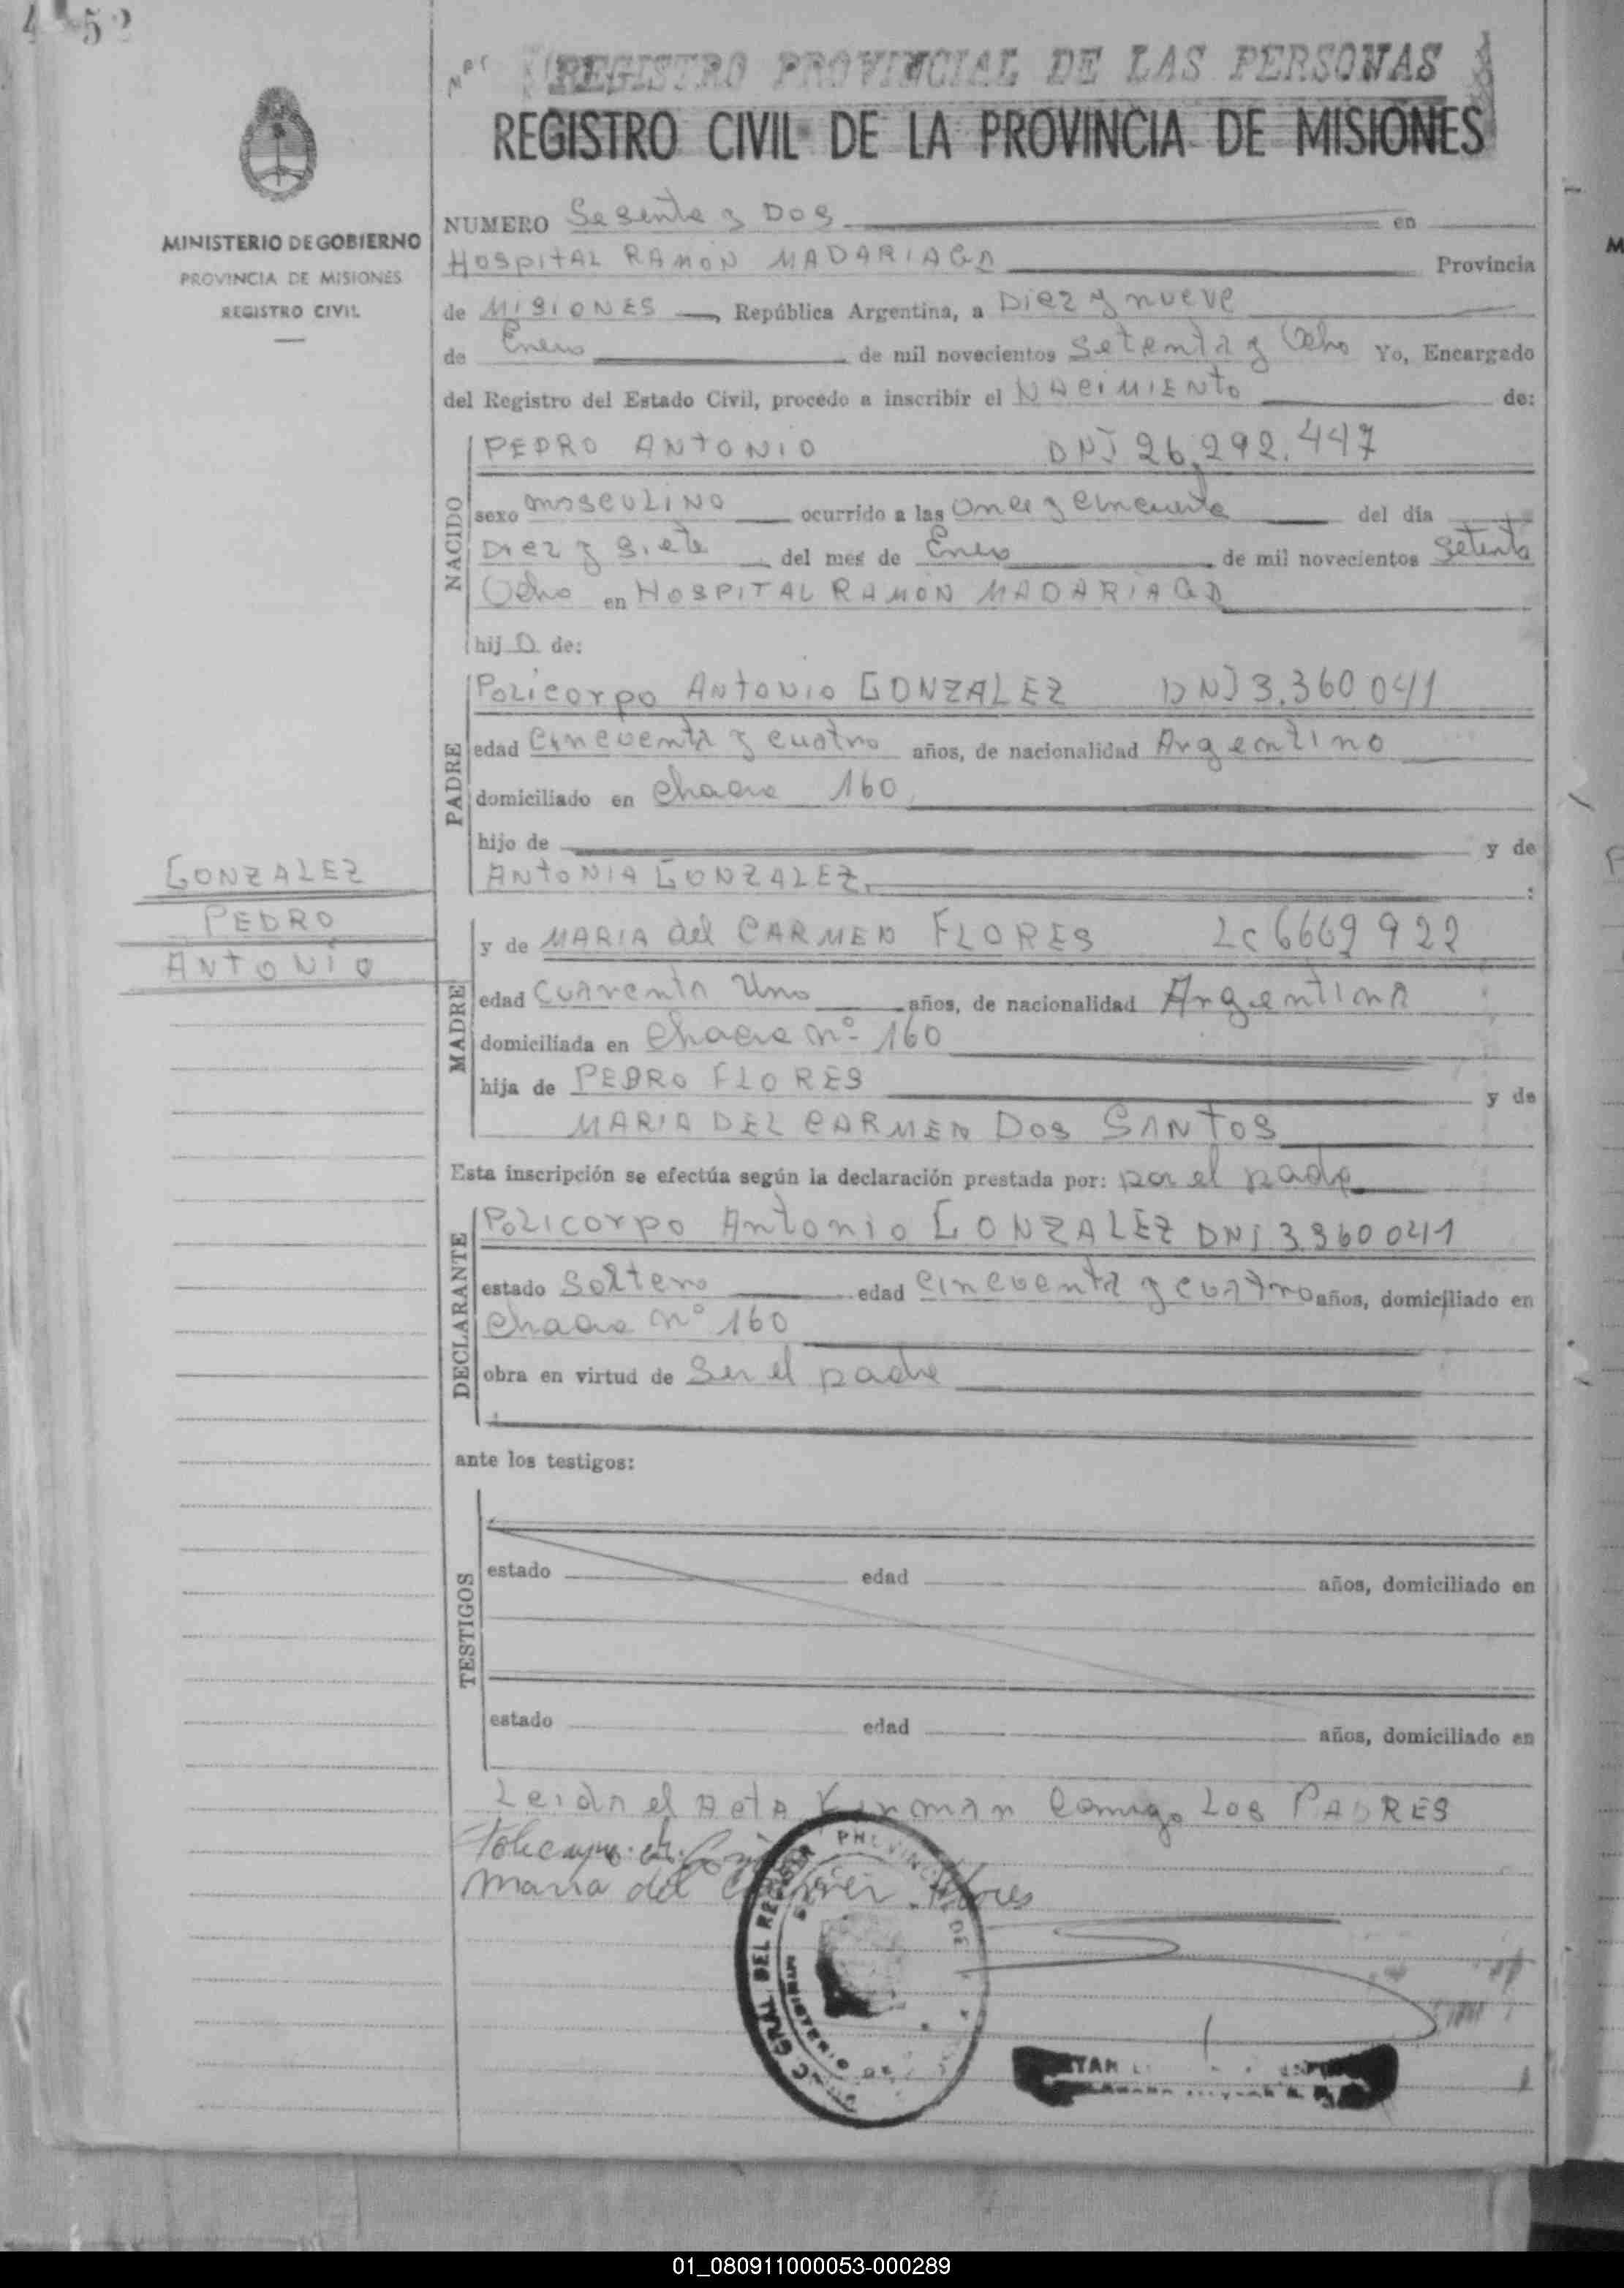 52
REGISTRO PROVINCIAL DE LAS PERSONAS
REGISTRO CIVIL DE LA PROVINCIA DE MISIONES
MINISTERIO DE GOBIERNO
PROVINCIA DE MISIONES
REGISTRO CIVIL
NUMERO Sesenta y Dos en
HOSPITAL RAMON MADARIAGA Provincia
de MISIONES, República Argentina, a Diez y nueve
de Enero de mil novecientos Setenta y Ocho Yo, Encargado
del Registro del Estado Civil, procedo a inscribir el NACIMIENTO de:
NACIDO
PEDRO ANTONIO DNI 26.292.447
sexo masculino ocurrido a las Once y cincuenta del día
Diez y Siete del mes de Enero de mil novecientos Setenta
Ocho en HOSPITAL RAMON MADARIAGA
hijo de:
PADRE
Policorpo Antonio GONZALEZ DNI 3.360.041
edad Cincuenta y cuatro años, de nacionalidad Argentino
domiciliado en Chacra 160
hijo de y de
ANTONIA GONZALEZ. :
GONZALEZ
PEDRO
ANTONIO
MADRE
y de MARIA del CARMEN FLORES LC 6669922
edad Cuarenta Uno años, de nacionalidad Argentina
domiciliada en Chacra nº 160
hija de PEDRO FLORES y de
MARIA DEL CARMEN DOS SANTOS
Esta inscripción se efectúa según la declaración prestada por: por el padre
DECLARANTE
Policorpo Antonio GONZALEZ DNI 3360041
estado Soltero edad Cincuenta y cuatro años, domiciliado en
Chacra nº 160
obra en virtud de Ser el padre
ante los testigos:
TESTIGOS
estado edad años, domiciliado en
estado edad años, domiciliado en
Leida el Acta Firman Comigo Los PADRES
Maria del Carmen Flores
GRAL DEL REGISTRO PROVINCIAL DE
01_080911000053-000289